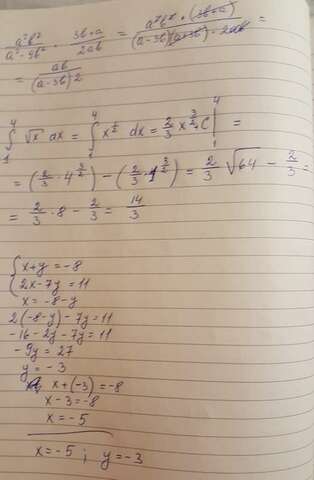 a²b² / (a²-9b²) · (3b+a) / 2ab = a²b² · (3b+a) / (a-3b)(a+3b) · 2ab =
= ab / (a-3b)2
∫₁⁴ √x dx = ∫₁⁴ x^(1/2) dx = 2/3 x^(3/2) |₁⁴ =
= (2/3 · 4^(3/2)) - (2/3 · 1^(3/2)) = 2/3 √64 - 2/3 =
= 2/3 · 8 - 2/3 = 14/3
{ x+y=-8
{ 2x-7y=11
x=-8-y
2(-8-y)-7y=11
-16-2y-7y=11
-9y=27
y=-3
x+(-3)=-8
x-3=-8
x=-5
x=-5 ; y=-3